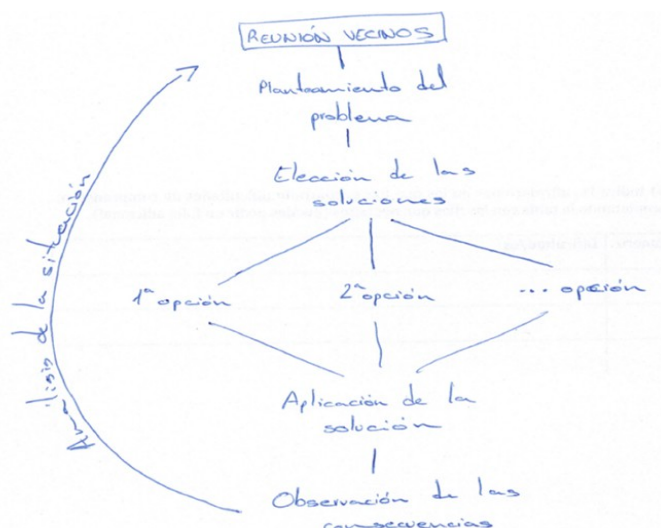 REUNIÓN VECINOS
Planteamiento del
problema
Elección de las
soluciones
1ª opción
2ª opción
... opción
Aplicación de la
solución
Observación de las
consecuencias
Análisis de la situación